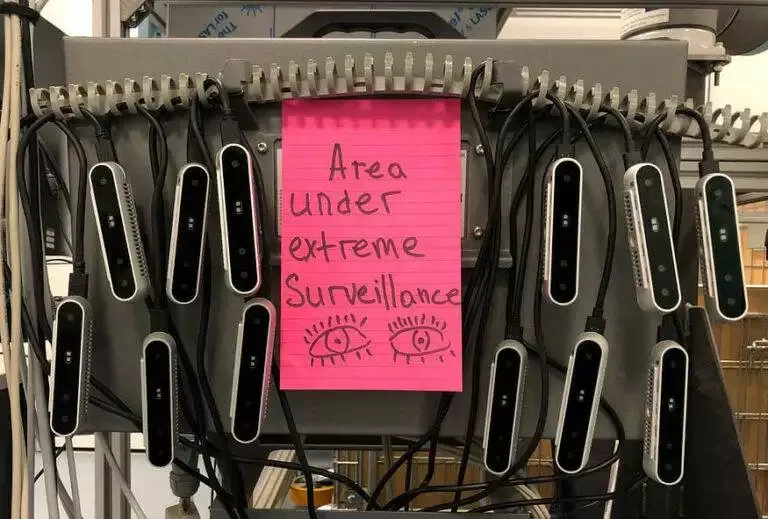 Area
under
extreme
Surveillance